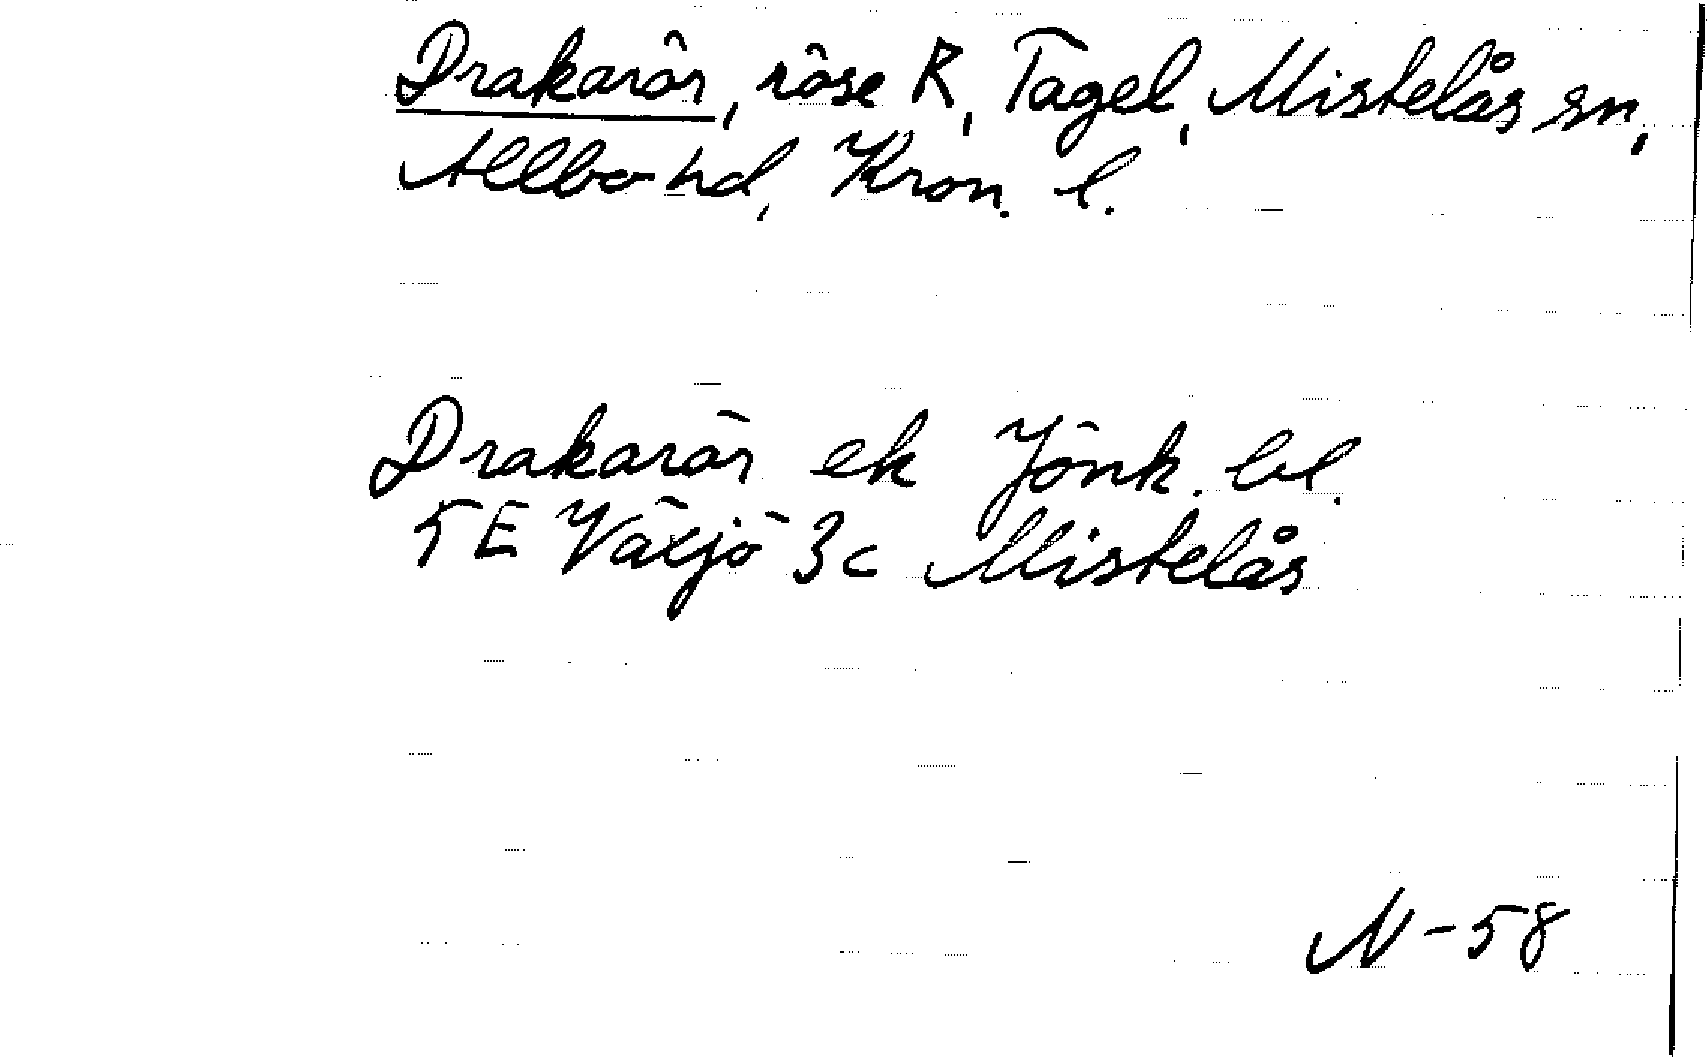 Drakarör, röse R, Tagel, Mistelås sn,
Allbo hd, Kron. l.
Drakarör ek Jönk. bl.
5E Växjö 3c Mistelås
N-58